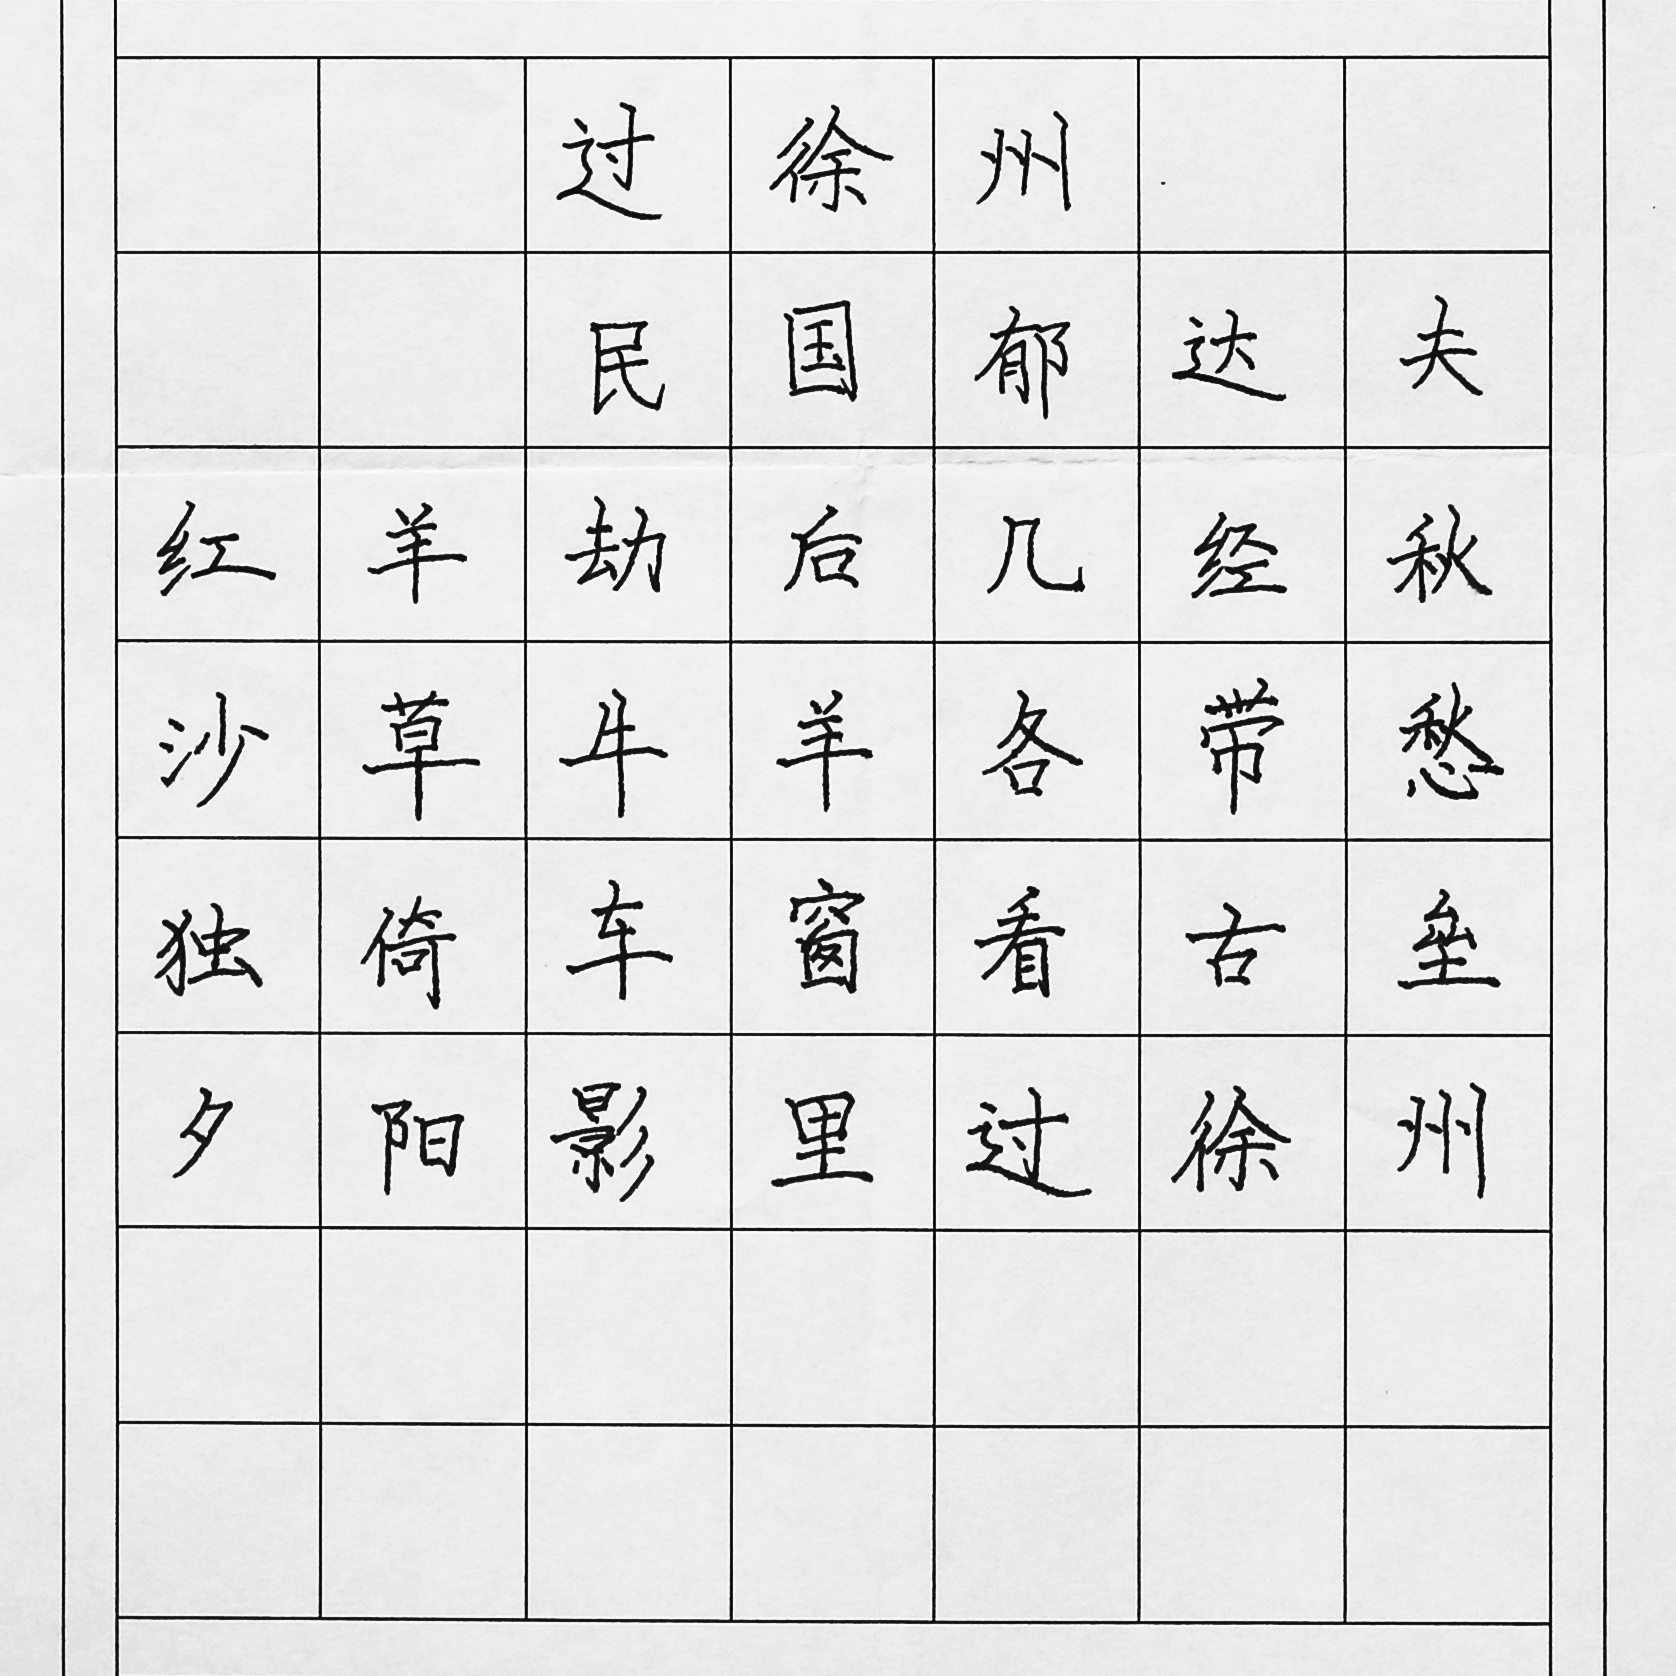 过徐州
民国郁达夫
红羊劫后几经秋
沙草牛羊各带愁
独倚车窗看古垒
夕阳影里过徐州